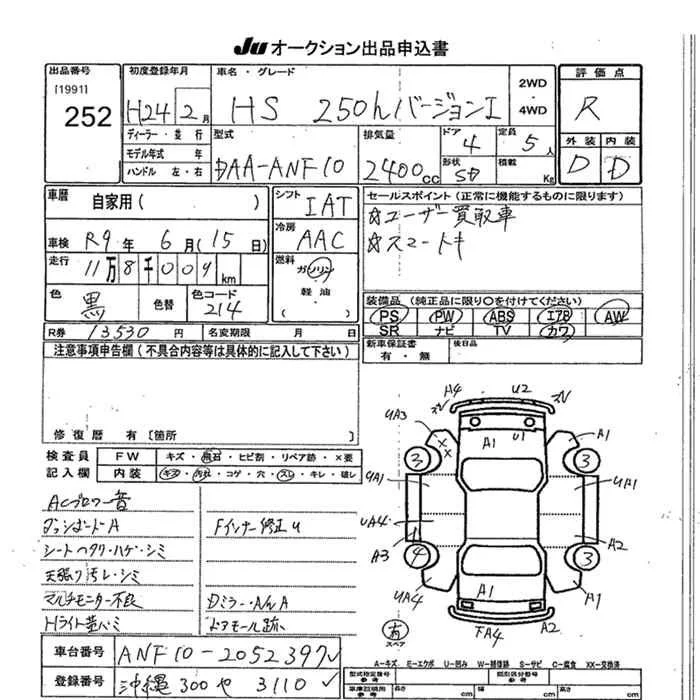 Ju オークション出品申込書
出品番号
[1991]
252
初度登録年月
H24 2月
車名・グレード
HS 250hバージョンI
2WD
・
4WD
評価点
R
ディーラー・並行
モデル年式 年
ハンドル 左・右
型式
DAA-ANF10
排気量
2400cc
ドア
4
定員
5人
形状
SD
積載
Kg
外装 内装
D D
車歴
自家用( )
車検 R9年 6月(15日)
走行 11万8千009km
色 黒 色替 色コード 214
R券 13530円 名変期限 月 日
シフト
IAT
冷房
AAC
燃料
ガソリン
軽油
( )
セールスポイント(正常に機能するものに限ります)
☆ユーザー買取車
☆スマートキ
装備品(純正品に限り○を付けてください)
PS PW ABS エアB AW
SR ナビ TV カワ
新車保証書
有・無
後日品
注意事項申告欄(不具合内容等は具体的に記入して下さい)
修復歴 有 〔箇所 〕
検査員
記入欄
FW キズ・飛石・ヒビ割・リペア跡・×要
内装 キズ・汚れ・コゲ・穴・スレ・キレ・破レ
ACブロワー音
ダッシュボードA
シートヘタリ・ハゲ・シミ
天張り汚レ・シミ
マルチモニター不良
Hライト黄バミ
Fインナー修正U
Dミラー・AんA
ドアモール跡い
A4 U2
UA3 A1 U1 A1
2 3
UA1 UA1
UA4 A2
A3 1
4 3
UA4 A1 A1
有
スペア
FA4 A2
A-キズ E-エクボ U-凹み W-補修跡 S-サビ C-腐食 XX-交換済
車台番号 ANF10-2052397✓
登録番号 沖縄 300 や 3110 ✓
型式指定番号
参考
類別区分番号
参考
車庫証明用
参考
長さ cm 幅 cm 高さ cm